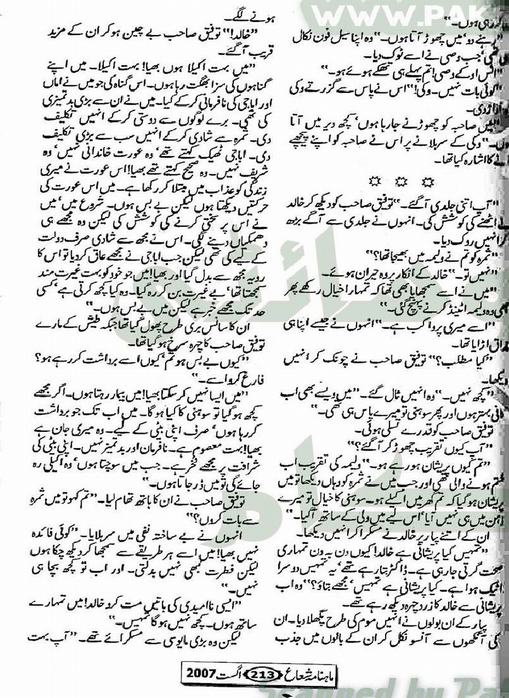 WWW.PAK
لا رہی ہوں۔"
"اپنے دو' میں چھوڑ آتا ہوں۔" وہ اپنا سیل فون نکال
تھی' جب وصی نے اسے ٹوک دیا۔
"اگر او کے وصی! تم پہلے ہی تھکے ہوئے ہو۔"
"کوئی بات نہیں۔ وکی!" اس نے پاس سے گزرتے وکی
"میں صاحب کو چھوڑنے جا رہا ہوں' کچھ دیر میں آتا
" وکی کے سر ہلانے پر اس نے صاحب کو اپنے پیچھے
نے کا اشارہ کیا تھا۔
"آپ اتنی جلدی آ گئے۔" توفیق صاحب کو دیکھ کر خالد
نے اٹھنے کی کوشش کی۔ انہوں نے جلدی سے آگے بڑھ
کر انہیں روک دیا۔
"ثمرہ کو تم نے ولیمہ میں بھیجا تھا؟"
"نہیں تو۔" خالد کے انکار پر وہ حیران ہوئے۔
"میں نے اسے سمجھایا بھی تھا کہ تمہارا خیال رکھے پر
وہ ولیمہ اٹینڈ کرنے پہنچ گئی۔"
"اسے میری پروا کب ہے۔" انہوں نے جیسے اپنا ہی
مذاق اڑایا تھا۔
"کیا مطلب؟" توفیق صاحب نے چونک کر انہیں
دیکھا۔
"کچھ نہیں۔" وہ انہیں ٹال گئے۔ "میں ویسے بھی اب
کافی بہتر ہوں اور پھر سوہنی تو میرے پاس ہی تھی۔"
توفیق صاحب کو قدرے تسلی ہوئی۔
"آپ کیوں تقریب چھوڑ کر آ گئے؟"
"تم کیوں پریشان ہو رہے ہو۔" ولیمہ کی تقریب اب
ختم ہونے والی تھی اور جب میں نے ثمرہ کو وہاں دیکھا تو میں
پریشان ہو گیا کہ تم گھر میں اکیلے ہو۔ سوہنی کا خیال تو میرے
ذہن میں ہی نہیں آیا' اس لیے میں ولی کے ساتھ آ گیا۔"
ان کے اتنے پیار پر خالد نے مسکرا کر انہیں دیکھا۔
"تمہیں کیا پریشانی ہے خالد! کیوں دن بہ دن تمہاری
صحت گرتی جا رہی ہے۔ ڈاکٹر بتا رہے تھے' یہ تمہیں دوسرا
اٹیک ہوا ہے۔ کیا پریشانی ہے تمہیں' مجھے بتاؤ؟" وہ اب
پریشانی سے خالد کا زرد چہرہ دیکھ رہے تھے۔
پیار کے ان بولوں نے انہیں موم کی طرح پگھلا دیا۔ ان
کی آنکھوں سے آنسو نکل کر ان کے بالوں میں جذب
ہونے لگے۔
"خالد!" توفیق صاحب بے چین ہو کر ان کے مزید
قریب آ گئے۔
"میں بہت اکیلا ہوں بھیا! بہت اکیلا۔ میں اپنے
گناہوں کی سزا بھگت رہا ہوں۔ اس گناہ کی جو میں نے اماں
اور اباجی کی نافرمانی کر کے کیا۔ میں نے ان سے بڑی بدتمیزی
کی تھی۔ برے لوگوں سے دوستی کر کے انہیں تکلیف
دی۔ ثمرہ سے شادی کر کے انہیں سب سے بڑی تکلیف
دی۔ اباجی ٹھیک کہتے تھے' وہ عورت خاندانی نہیں' وہ
شریف نہیں۔ وہ صحیح کہتے تھے بھیا! اس عورت نے میری
زندگی کو عذاب میں مبتلا کر رکھا ہے۔ میں اس عورت کی
حرکتیں دیکھتا ہوں لیکن بے بس ہوں۔ شروع میں' میں
نے اس پر سختی کرنے کی کوشش کی لیکن وہ مجھے ہی
دھمکیاں دینے لگی۔ اس نے مجھ سے شادی صرف دولت
کے لیے کی تھی لیکن جب اباجی نے مجھے عاق کر دیا تو اس کا
رویہ مجھ سے بدل گیا اور بھیا! میں جو خود کو بہت غیرت مند
سمجھتا تھا' بے غیرت بن کر رہ گیا۔ وہ کیا کچھ کرتی ہے' کسی
حد تک مجھے خبر ہے لیکن میں بے بس ہوں۔"
ان کا سانس بری طرح پھول گیا تھا جبکہ طیش کے مارے
توفیق صاحب کا چہرہ سرخ ہو گیا تھا۔
"کیوں بے بس ہو تم' کیوں اسے برداشت کر رہے ہو؟
فارغ کرو اسے۔"
"میں ایسا نہیں کر سکتا بھیا! میں بیمار رہتا ہوں۔ اگر مجھے
کچھ ہو گیا تو سوہنی کا کیا ہو گا۔ میں اب تک جو برداشت
کر رہا ہوں' صرف اپنی بیٹی کے لیے۔ وہ میری جان ہے
بھیا! بہت معصوم ہے۔ نافرمان اور بدتمیز نہیں۔ اپنی بیٹی کی
شرافت پر مجھے فخر ہے۔ جب میں سوچتا ہوں' وہ اکیلی رہ
جائے گی تو میں ڈر جاتا ہوں۔"
توفیق صاحب نے ان کا ہاتھ تھام لیا۔ "تم کہو تو میں ثمرہ
سے بات کروں؟"
انہوں نے بے ساختہ نفی میں سر ہلایا۔ "کوئی فائدہ
نہیں بھیا! میں اسے ہر طریقے سے سمجھا کر دیکھ چکا ہوں
لیکن فطرت کبھی نہیں بدلتی۔ اور اب تو کچھ بچا ہی
نہیں۔"
"ایسی ناامیدی کی باتیں مت کرو خالد! میں تمہارے
ساتھ ہوں۔ کچھ نہیں ہو گا تمہیں۔"
لیکن وہ بڑی مایوسی سے مسکرائے تھے۔ "آپ بہت
ماہنامہ شعاع 213 اگست 2007